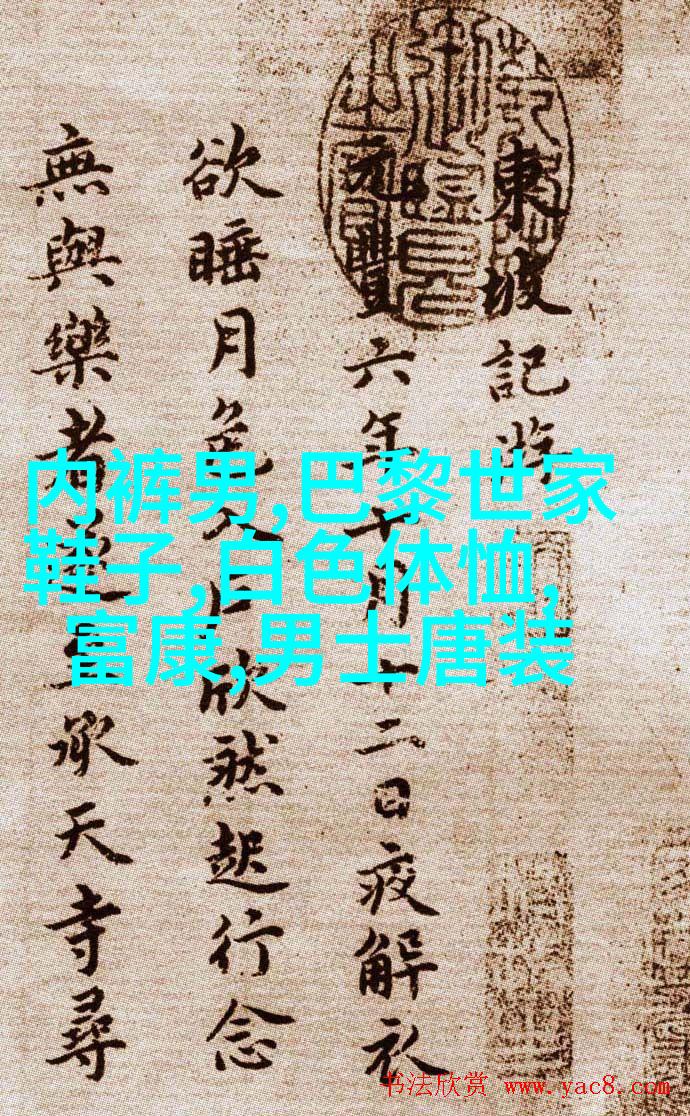 東坡記
元豐六年十月十二日夜解衣
欲睡月色入户欣然起行念
無與樂者遂至承天寺尋
内裤男,巴黎世家
鞋子,白色体恤,
富康,男士唐装
书法欣赏 www.yac8.com